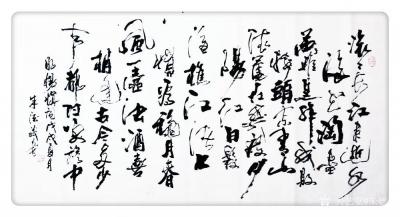 滚滚长江东逝水
浪花淘尽
英雄是非成败
转头空青山
依旧在几度夕
阳红白发
渔樵江渚上
惯看秋月春
风一壶浊酒喜
相逢古今多少
事都付笑谈中